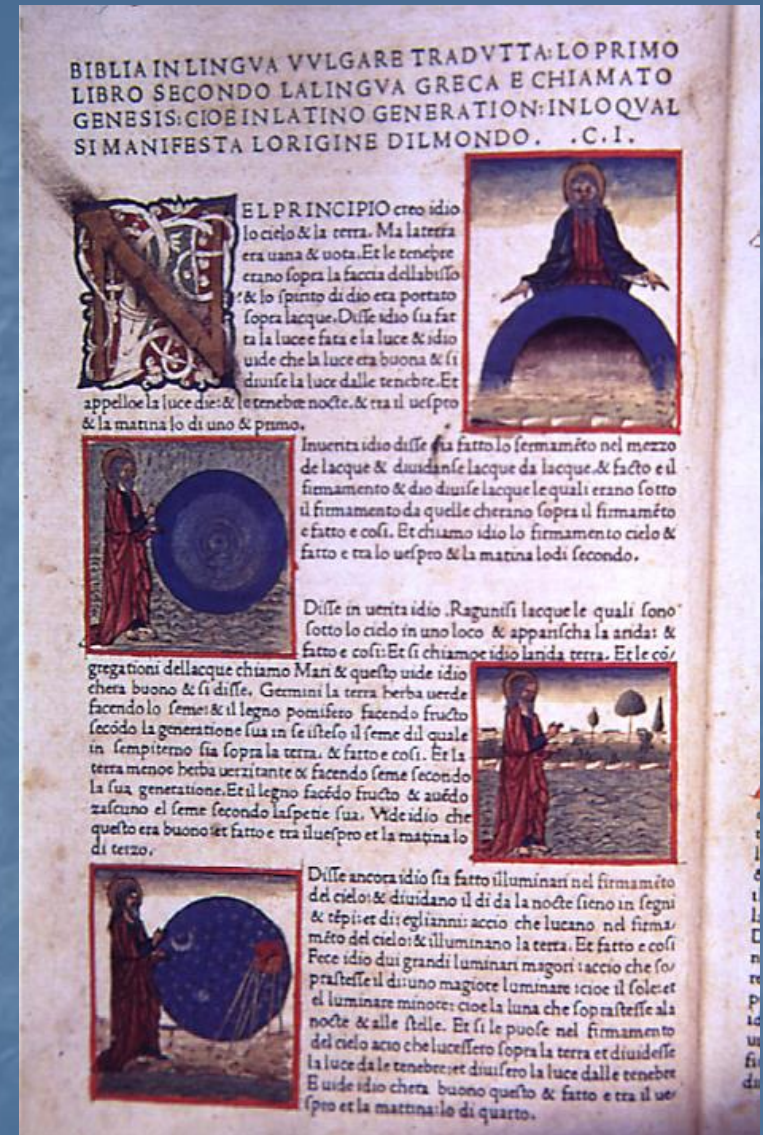 BIBLIA IN LINGVA VVLGARE TRADVTTA: LO PRIMO
LIBRO SECONDO LALINGVA GRECA E CHIAMATO
GENESIS: CIOE IN LATINO GENERATION: INLOQVAL
SI MANIFESTA LORIGINE DILMONDO. .C.I.
NEL PRINCIPIO creo idio
lo cielo & la terra. Ma la terra
era uana & uota. Et le tenebre
erano sopra la faccia dellabisso
& lo spirito di dio era portato
sopra lacque. Disse idio sia fat
ta la luce e fata e la luce & idio
uide che la luce era buona & si
diuise la luce dalle tenebre. Et
appelloe la luce die: & le tenebre nocte. & tra il uespro
& la matina lo di uno & primo.
Inuerita idio disse sia fatto lo fermamẽto nel mezzo
de lacque & diuidanse lacque da lacque. & facto e il
firmamento & dio diuise lacque le quali erano sotto
il firmamento da quelle cherano sopra il firmamẽto
e fatto e cosi. Et chiamo idio lo firmamento cielo &
fatto e tra lo uespro & la matina lo di secondo.
Disse in uerita idio. Ragunisi lacque le quali sono
sotto lo cielo in uno loco & apparischa la arida: &
fatto e cosi: Et si chiamoe idio larida terra. Et le cõ/
gregationi dellacque chiamo Mari & questo uide idio
chera buono & si disse. Germini la terra herba uerde
facendo lo seme: & il legno pomifero facendo fructo
secõdo la generatione sua in se isteso il seme dil quale
in sempiterno sia sopra la terra. & fatto e cosi. Et la
terra menoe herba uerzitante & facendo seme secondo
la sua generatione. Et il legno facẽdo fructo & auẽdo
zascuno el seme secondo laspetie sua. Vide idio che
questo era buono et fatto e tra iluespro et la matina lo
di terzo.
Disse ancora idio sia fatto illuminari nel firmamẽto
del cielo: & diuidano il di da la nocte sieno in segni
& tẽpi: et di: eglianni: accio che lucano nel firma/
mẽto del cielo: & illuminano la terra. Et fatto e cosi
Fece idio dui grandi luminari magori: accio che so/
prastesse il di: uno magiore luminare: cioe il sole: et
el luminare minore: cioe la luna che soprastesse ala
nocte & alle stelle. Et si le puose nel firmamento
del cielo acio che lucessero sopra la terra et diuidesse
la luce da le tenebre: et diuisero la luce dalle tenebre
E uide idio chera buono questo & fatto e tra il ue/
spro et la mattina: lo di quarto.